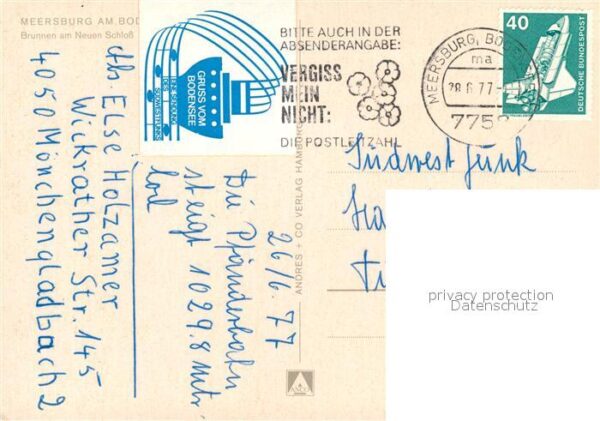 MEERSBURG AM BOD
Brunnen am Neuen Schloß
GRUSS VOM
BODENSEE
EINE SENDUNG
DES
SÜDWESTFUNKS
BITTE AUCH IN DER
ABSENDERANGABE:
VERGISS
MEIN
NICHT:
DIE POSTLEITZAHL
MEERSBURG, BOD
ma
28.6.77
775
40
DEUTSCHE BUNDESPOST
Abs. Else Holzamer
Wickrather Str. 145
4050 Mönchengladbach 2
26/6.77
Die Pfänderbahn
steigt 1029.8 mtr.
ANDRES + CO VERLAG HAMBURG
Südwest Funk
privacy protection
Datenschutz